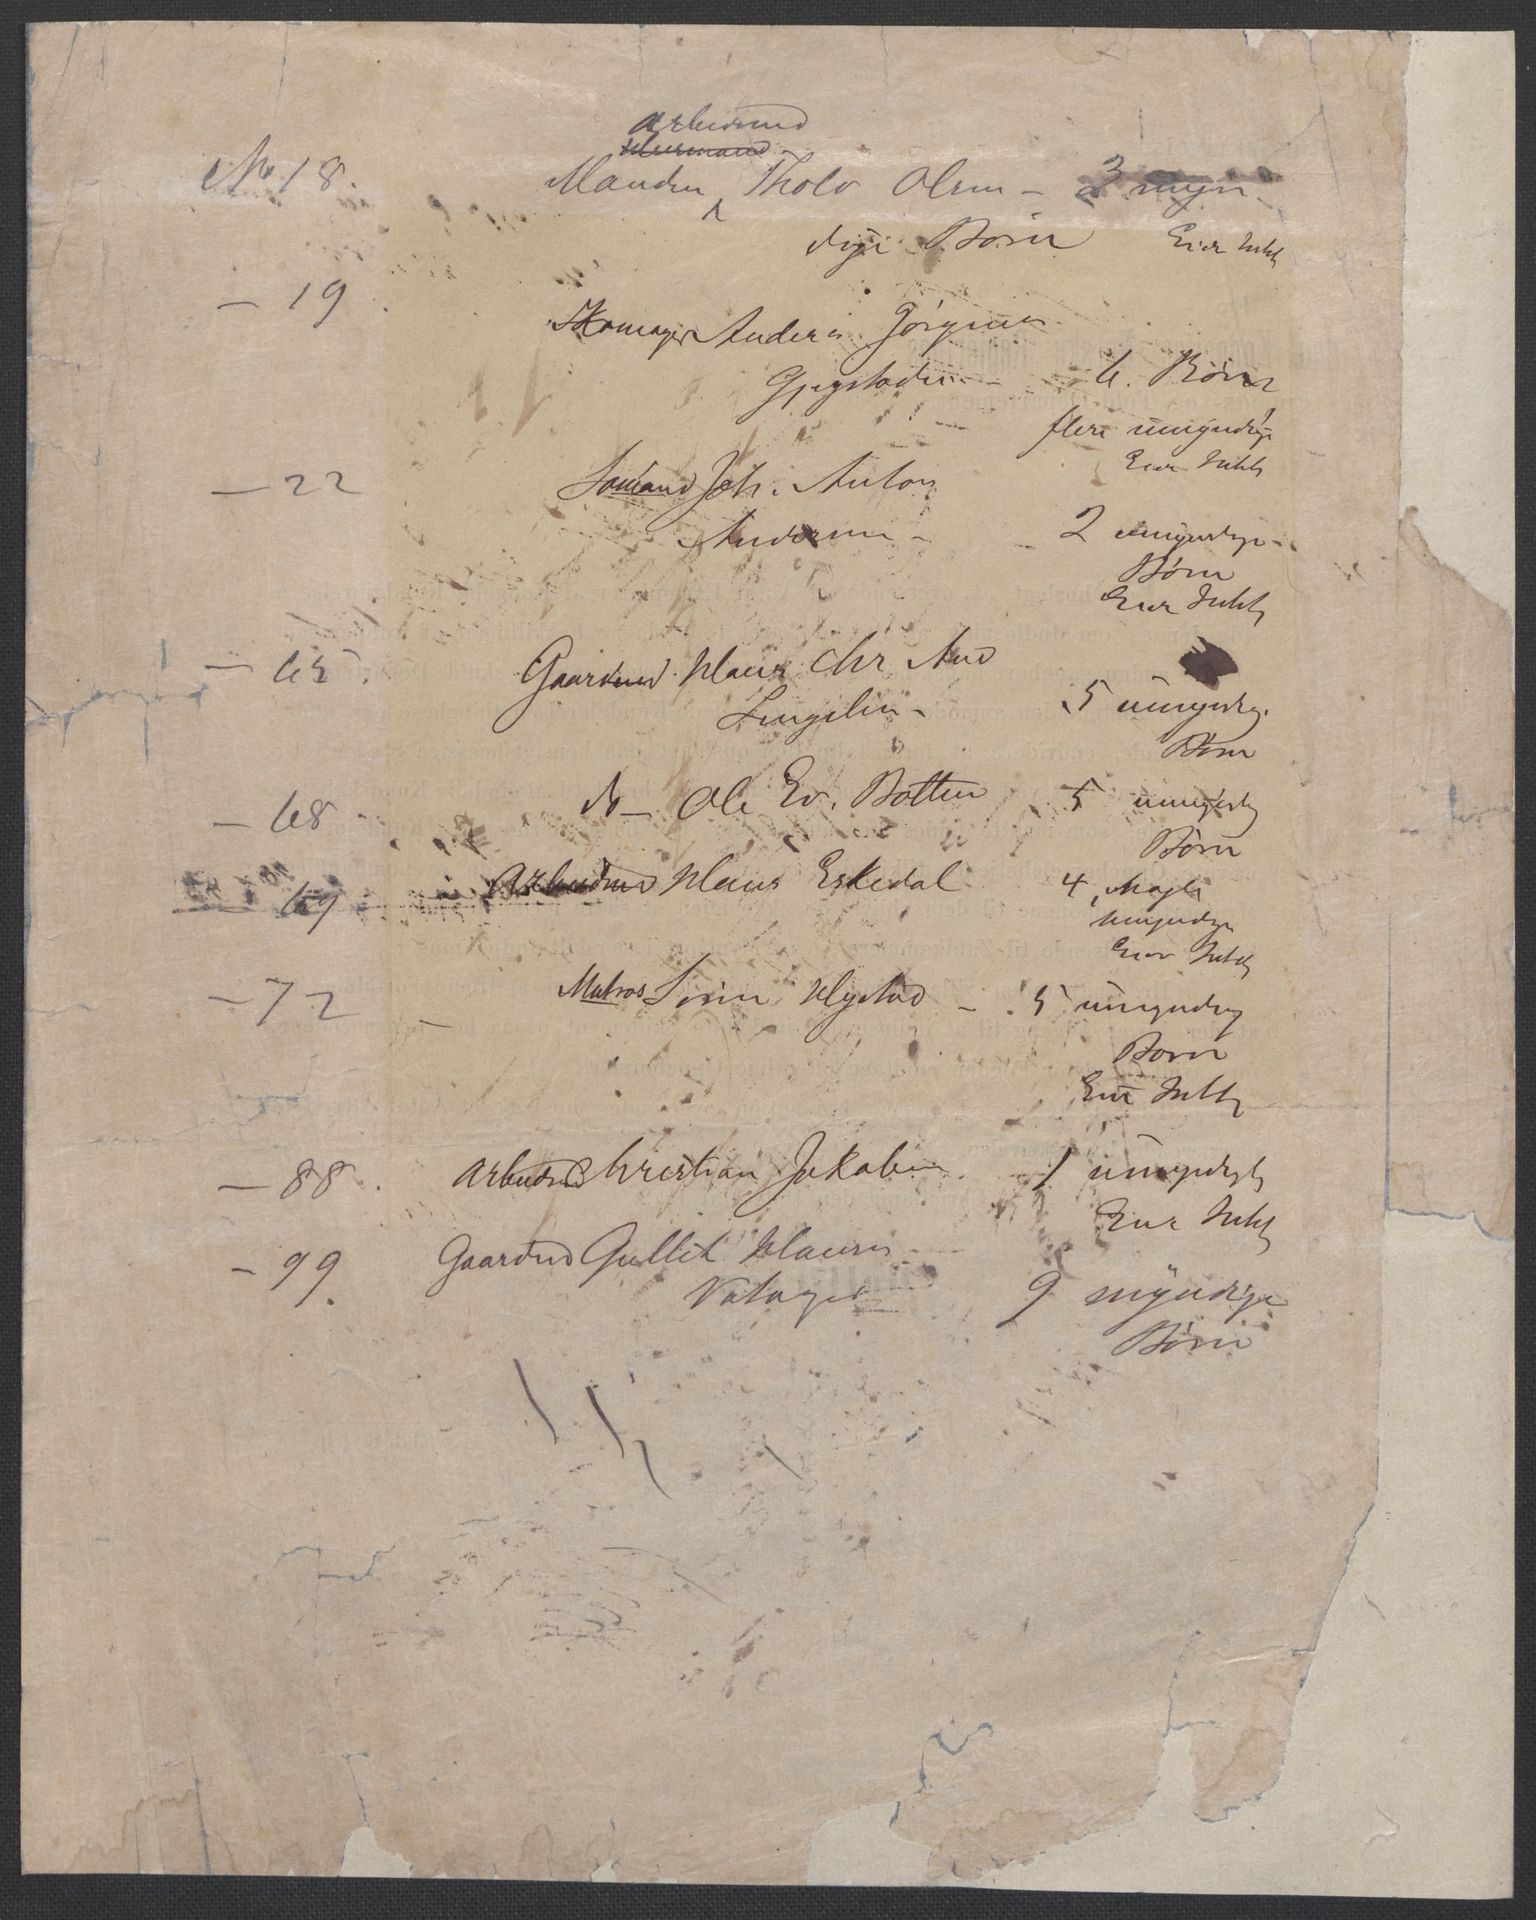 Arbeidsmd
No 18. Manden Tholv Olsen - 3 myn-
dige Børn Eier Intet
- 19 Skomager Anders Jørgensen
Gjegstadsen - 6. Børn
flere umyndige
Eier Intet
- 22 Sømand Joh. Anton
Andersen - 2 umyndige -
Børn
Eier Intet
- 65. Gaardmd Klaus Chr And
Lingelien - 5 umyndige
Børn
- 68 do - Ole Ev. Botten 5 umyndig
Børn
- 69 Arbeidmd Klaus Eskedal 4
umyndige
Eier Intet
- 72 Matros Sørin Klystad - 5 umyndig
Børn
Eier Intet
- 88. Arbeidmd Christian Jakobsen 1 umyndigt
Eier Intet
- 99. Gaardmd Gullik Klausen
9 myndige
Børn